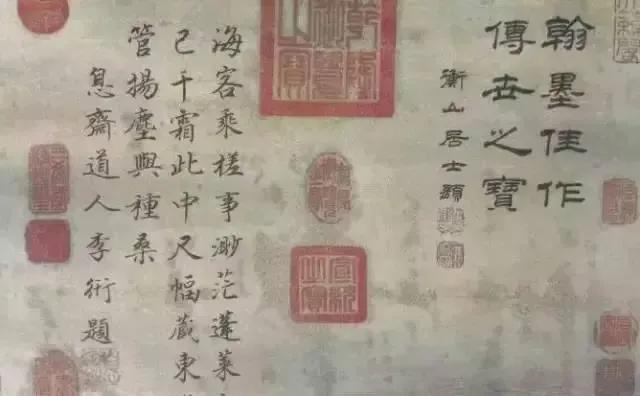 翰墨佳作
傳世之寶
衡山居士題
海客乘槎事渺茫蓬萊
已千霜此中尺幅藏東
管揚塵與種桑
息齋道人李衎題